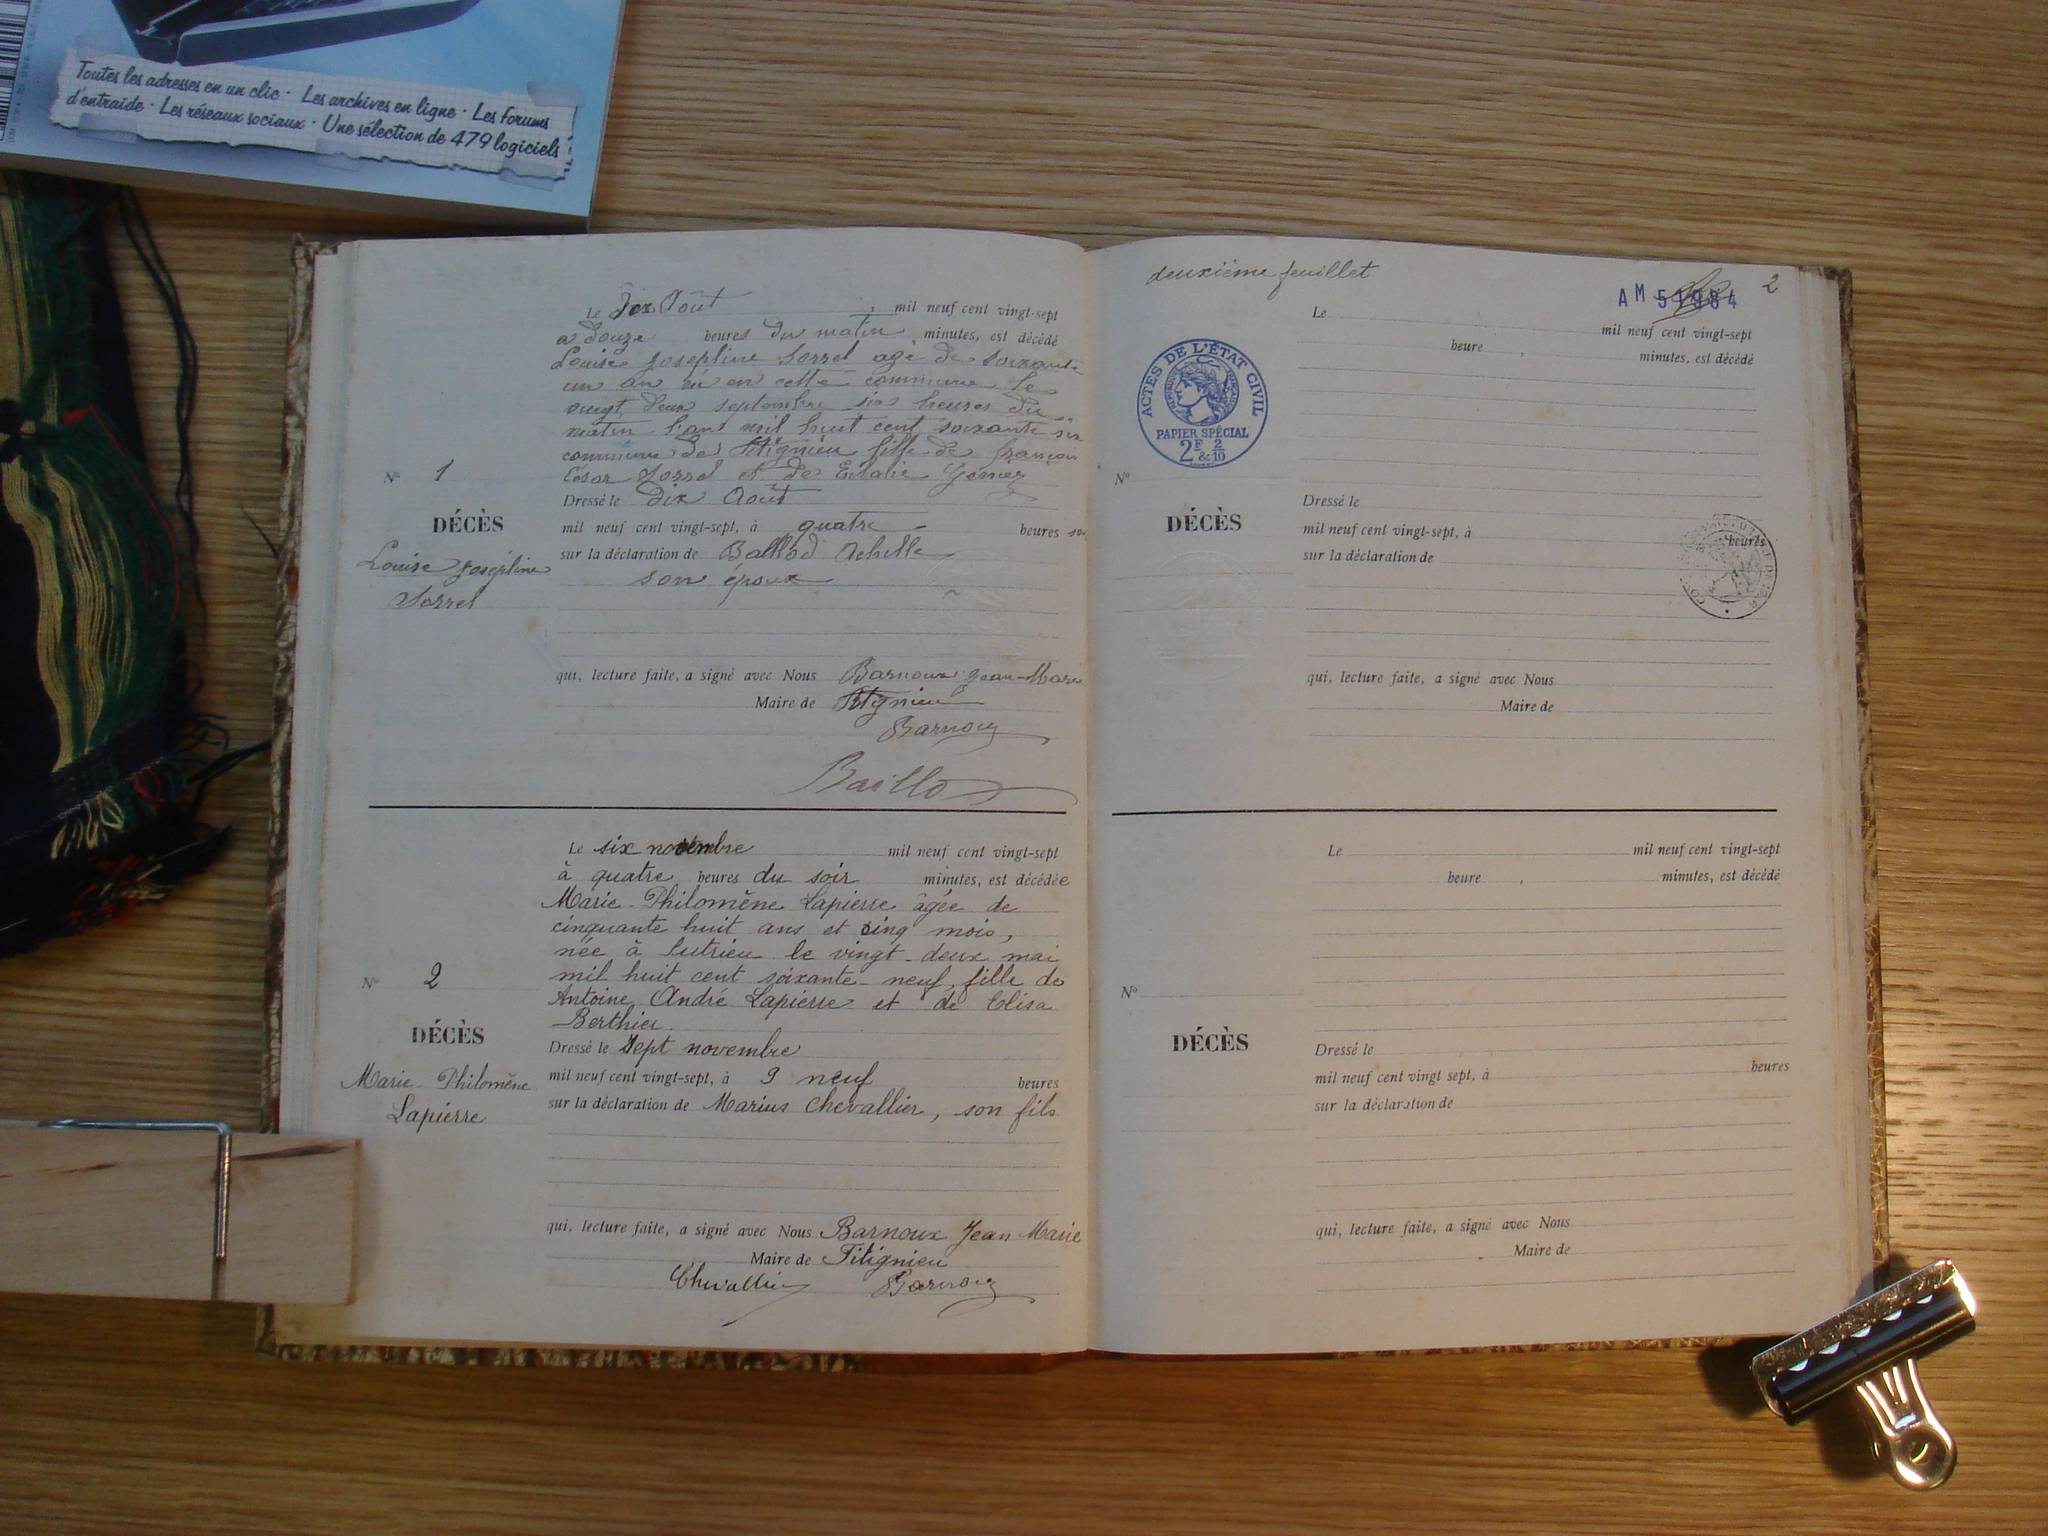 Toutes les adresses en un clic · Les archives en ligne · Les forums
d'entraide · Les réseaux sociaux · Une sélection de 479 logiciels
Le Dix Août, mil neuf cent vingt-sept
a douze heures du matin minutes, est décédé
Louise Joséphine Sorrel agé de soixante
un an né en cette commune le
vingt deux septembre six heures du
matin l'an mil huit cent soixante six
commune de Titignieu fille de françois
César Sorrel et de Eulalie
No 1
Dressé le dix Août
DÉCÈS
mil neuf cent vingt-sept, à quatre heures
sur la déclaration de Achille
Louise Joséphine
son époux
Sorrel
qui, lecture faite, a signé avec Nous Barnoux Jean-Marie
Maire de Titignieu
Barnoux
Le six novembre mil neuf cent vingt-sept
à quatre heures du soir minutes, est décédée
Marie-Philomène Lapierre âgée de
cinquante huit ans et cinq mois,
née à Sutrieu le vingt-deux mai
mil huit cent soixante-neuf, fille de
Antoine, André Lapierre et de Elisa
Berthier.
No 2
DÉCÈS
Dressé le Sept novembre
Marie-Philomène
Lapierre
mil neuf cent vingt-sept, à 9 neuf heures
sur la déclaration de Marius Chevallier, son fils
qui, lecture faite, a signé avec Nous Barnoux Jean Marie
Maire de Titignieu
Chevallier Barnoux
deuxième feuillet
AM 51984
2
Le mil neuf cent vingt-sept
heure , minutes, est décédé
ACTES DE L'ÉTAT CIVIL
RÉPUBLIQUE FRANÇAISE
PAPIER SPÉCIAL
2F & 2/10
No
Dressé le
DÉCÈS
mil neuf cent vingt-sept, à heures
sur la déclaration de
qui, lecture faite, a signé avec Nous
Maire de
Le mil neuf cent vingt-sept
heure , minutes, est décédé
No
DÉCÈS
Dressé le
mil neuf cent vingt sept, à heures
sur la déclaration de
qui, lecture faite, a signé avec Nous
Maire de